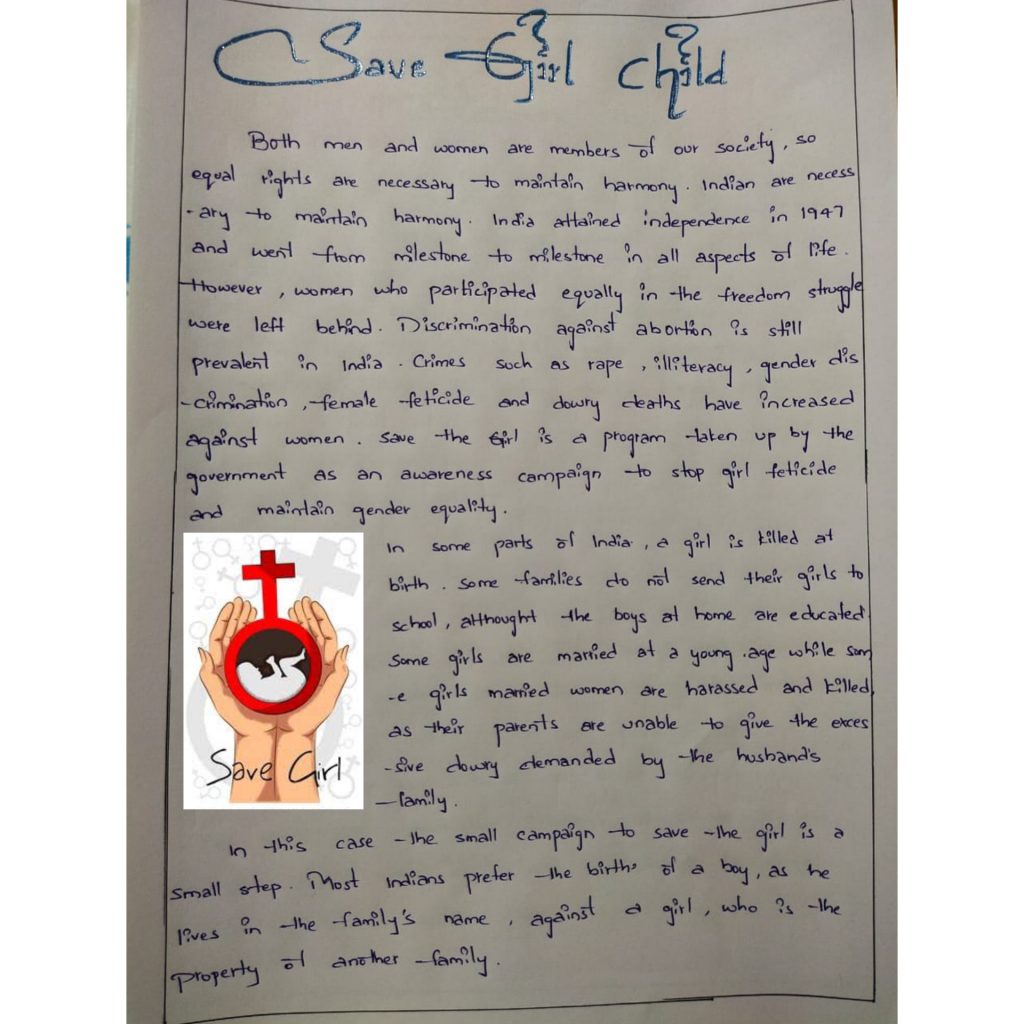 Save Girl Child
Both men and women are members of our society, so
equal rights are necessary to maintain harmony. Indian are necess
-ary to maintain harmony. India attained independence in 1947
and went from milestone to milestone in all aspects of life.
However, women who participated equally in the freedom struggle
were left behind. Discrimination against abortion is still
prevalent in India. Crimes such as rape, illiteracy, gender dis
-crimination, female feticide and dowry deaths have increased
against women. Save the Girl is a program taken up by the
government as an awareness campaign to stop girl feticide
and maintain gender equality.
In some parts of India, a girl is killed at
birth. Some families do not send their girls to
school, althought the boys at home are educated
Some girls are married at a young .age while som
-e girls married women are harassed and killed
as their parents are unable to give the exces
-sive dowry demanded by the husband's
family.
Save Girl
In this case the small campaign to save the girl is a
small step. Most Indians prefer the birth of a boy, as he
lives in the family's name, against a girl, who is the
property of another family.